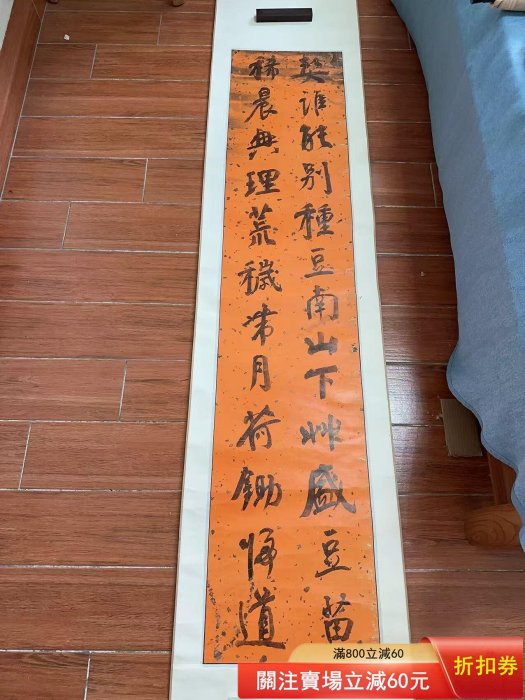 契誰能別種豆南山下艸盛豆苗
稀晨興理荒穢帶月荷鋤歸道
滿800立減60
關注賣場立減60元
折扣券